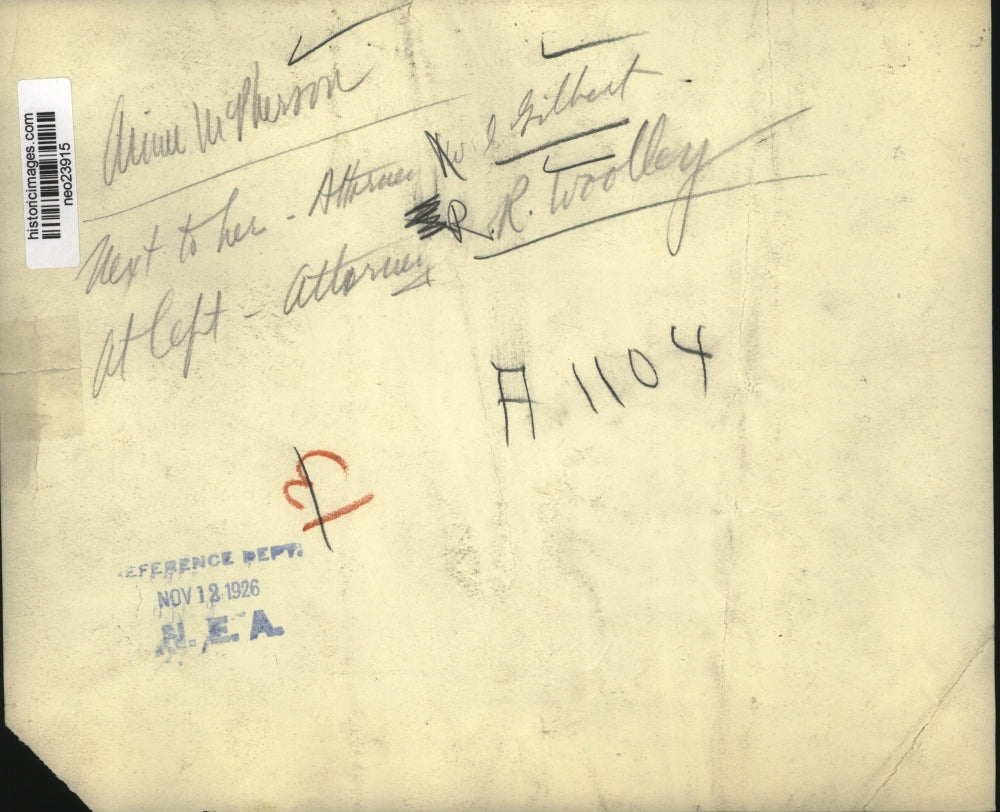 historicimages.com
neo23915
Aimee McPherson
Next to her - Attorney W. I. Gilbert
At left - Attorney R. R. Woolley
A 1104
EFERENCE DEPT.
NOV 12 1926
N. E. A.